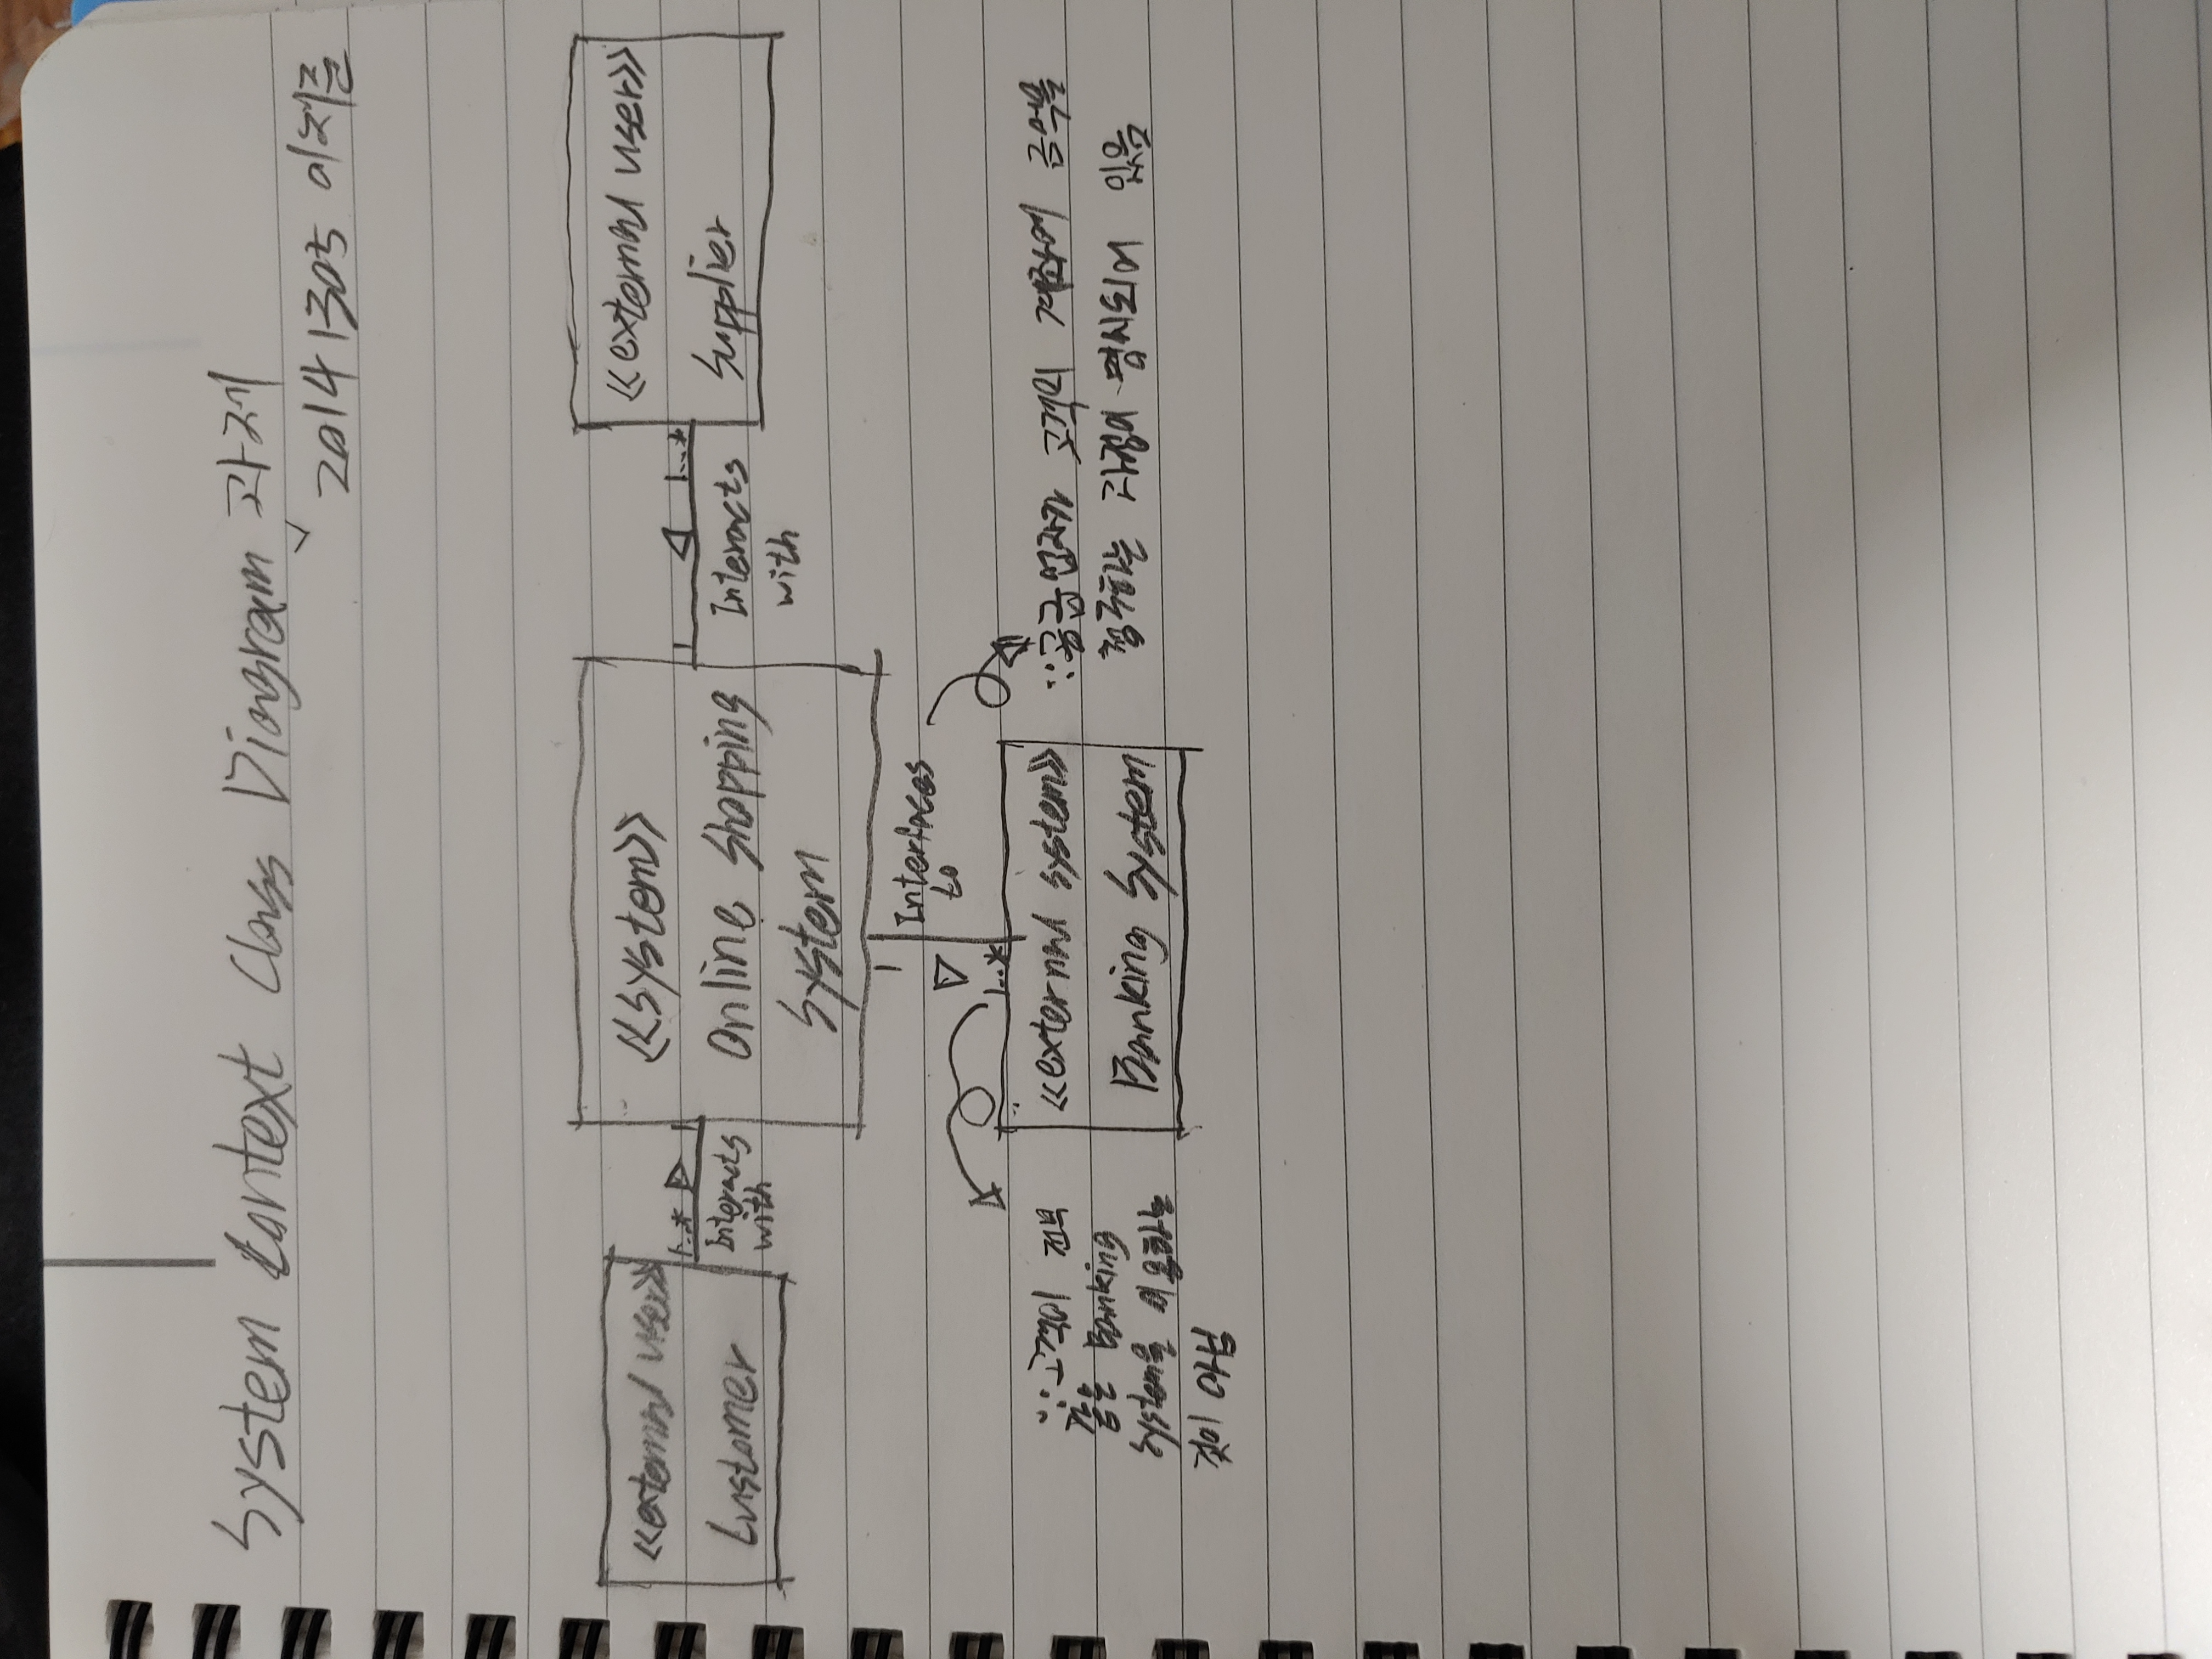 System Context Class Diagram 과제
20141305 이제준
<<external user>>
Customer
1..*
1
Interacts
with
<<system>>
Online Shopping
System
1
1..*
Interacts
with
<<external user>>
Supplier
1
Interfaces
to
1..*
<<external system>>
Banking System
∵고객이 전부
같은 Banking
System을 이용하는
것이 아님
∵공급업자가 고객의 계좌에 금액을
청구하는 과정이 명시되어 있음